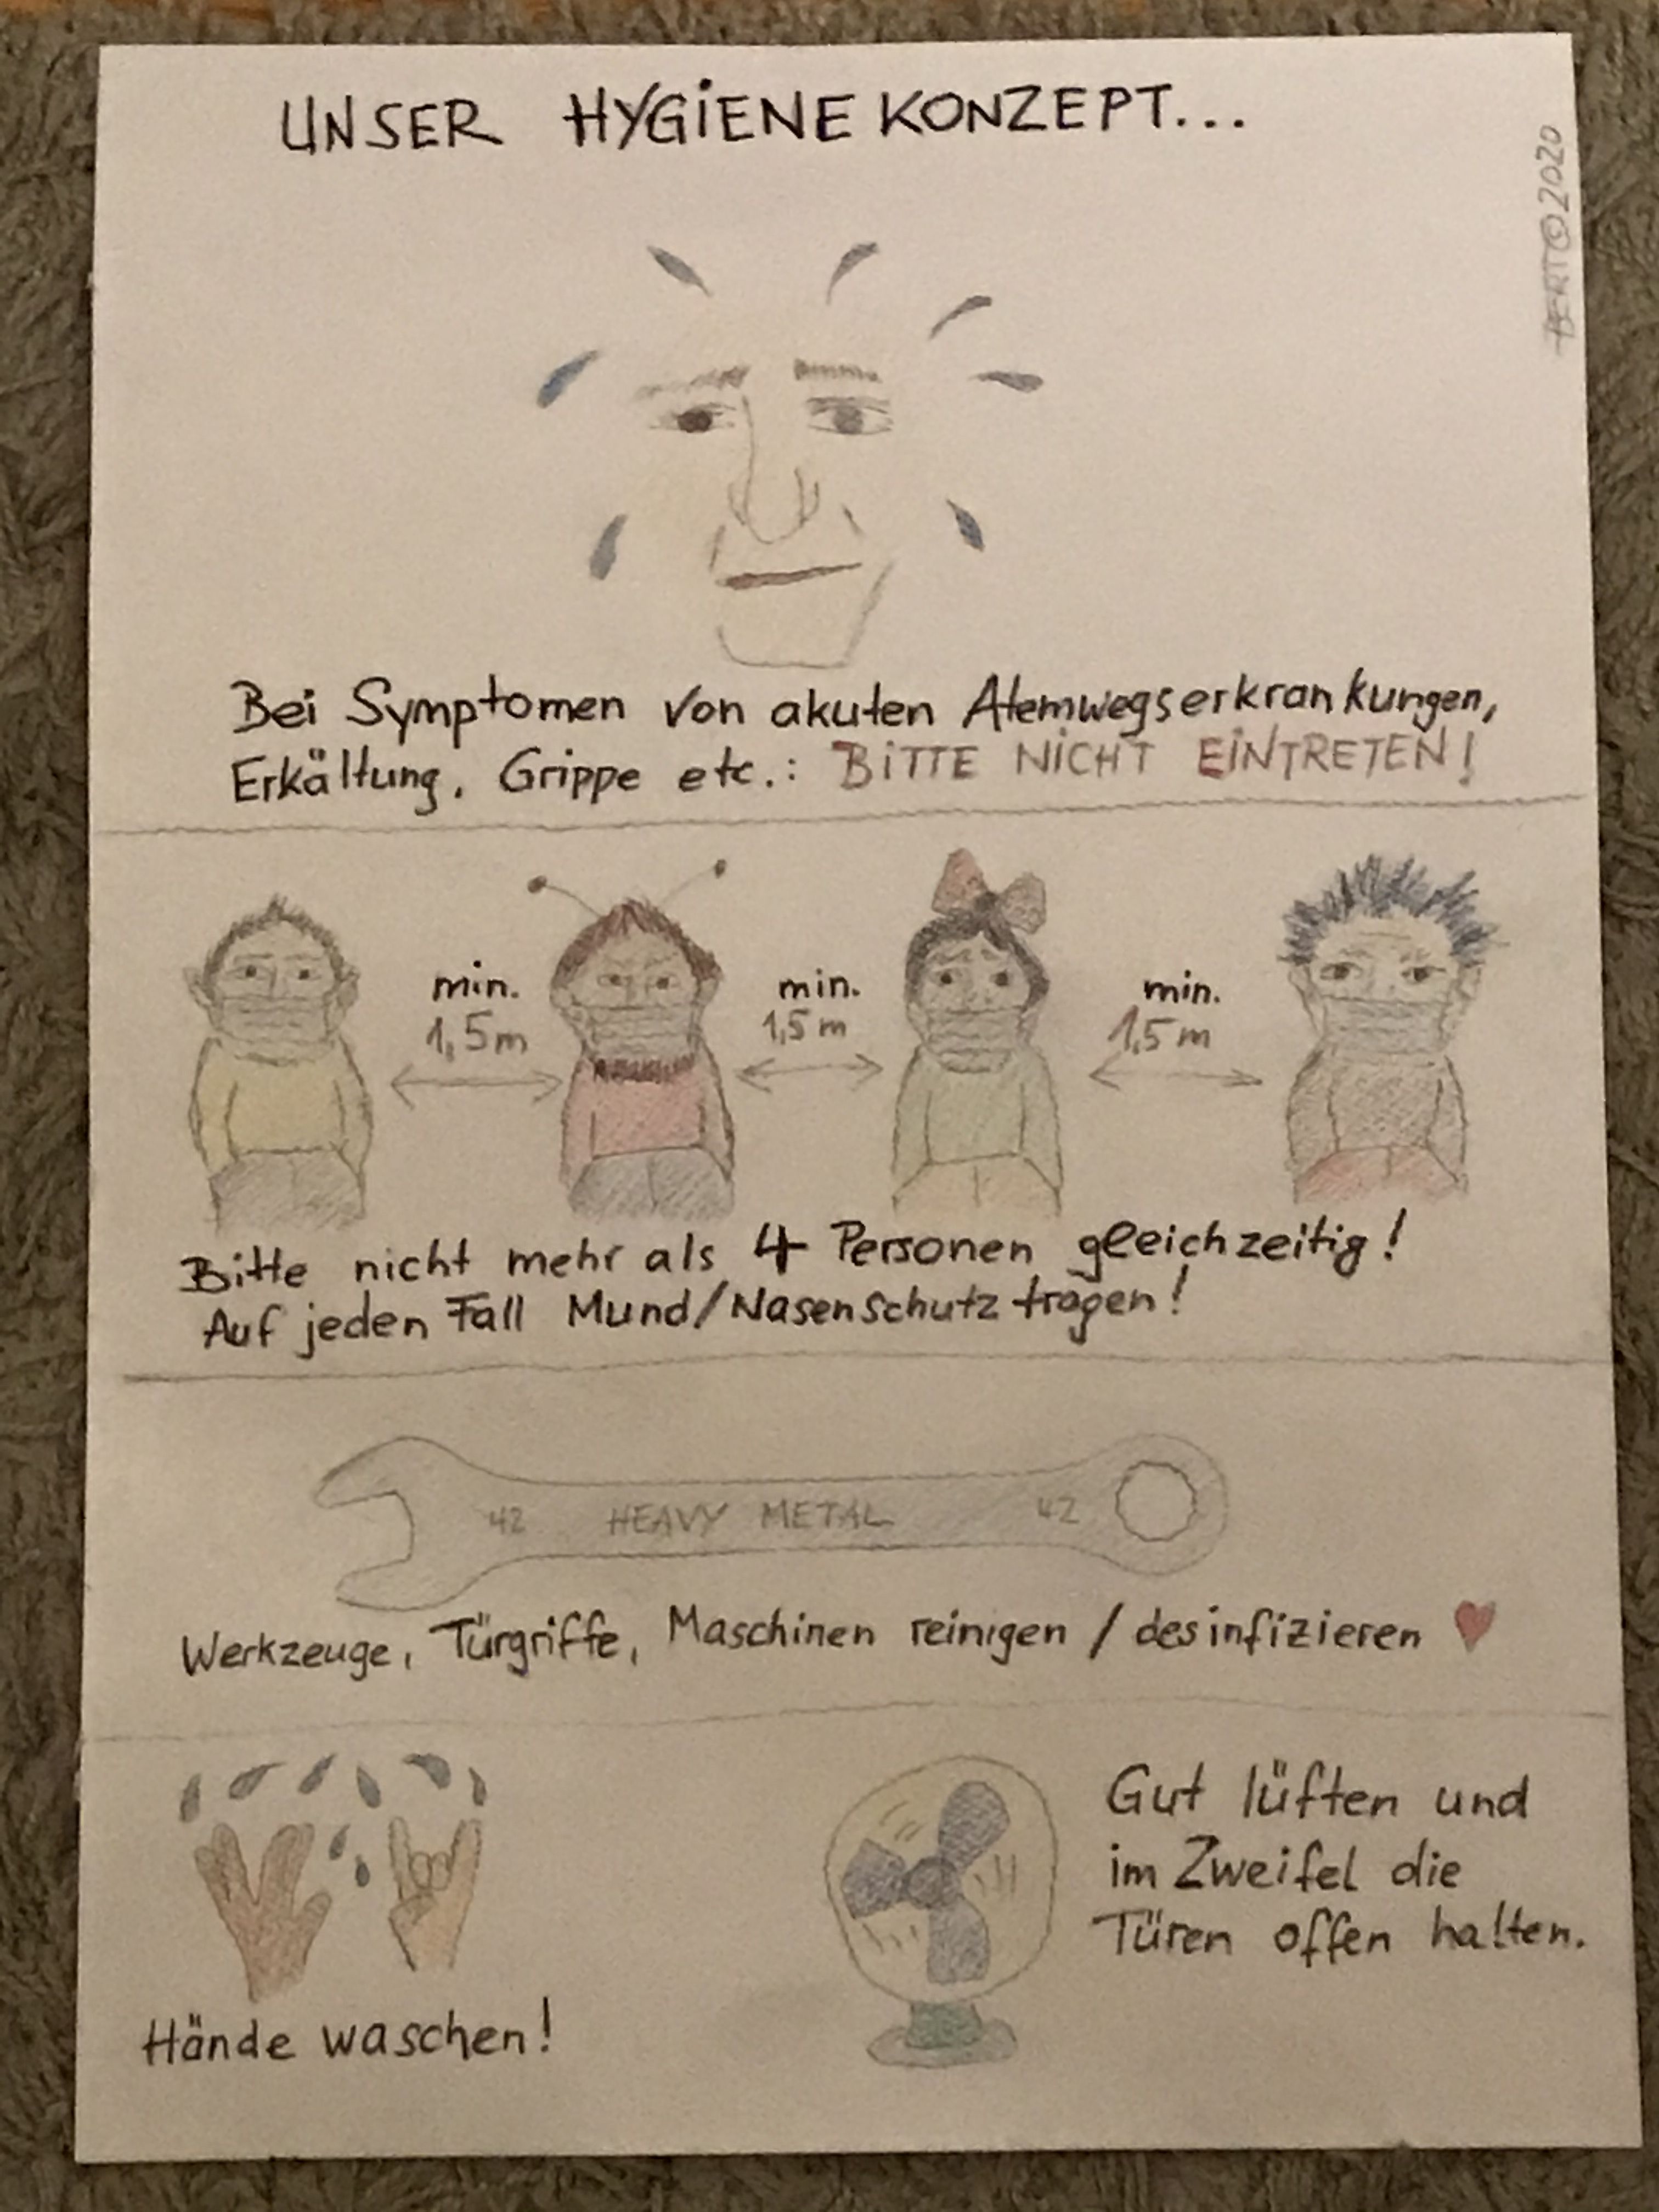 UNSER HYGiENEKONZEPT...
BERT©2020
Bei Symptomen von akuten Atemwegserkrankungen,
Erkältung, Grippe etc.: BiTTE NiCHT EiNTRETEN!
min. min. min.
1,5m 1,5m 1,5m
Bitte nicht mehr als 4 Personen gleichzeitig!
Auf jeden Fall Mund/Nasenschutz tragen!
42 HEAVY METAL 42
Werkzeuge, Türgriffe, Maschinen reinigen / desinfizieren ♥
Hände waschen!
Gut lüften und
im Zweifel die
Türen offen halten.